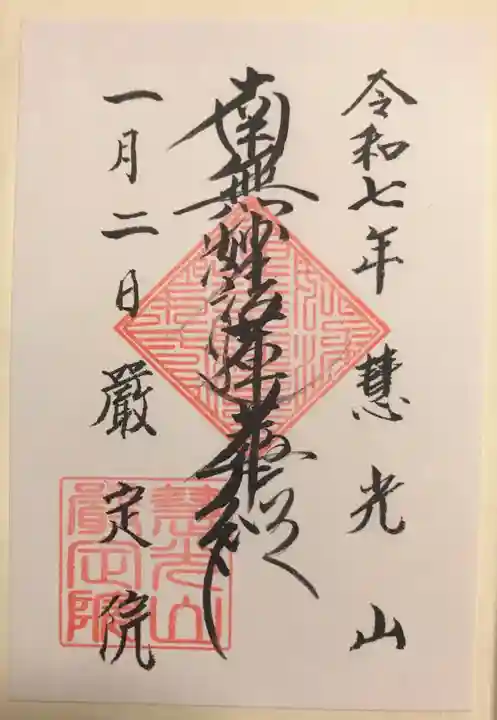 令和七年 慧光山
南無妙法蓮華経
一月二日 嚴定院
慧光山
嚴定院